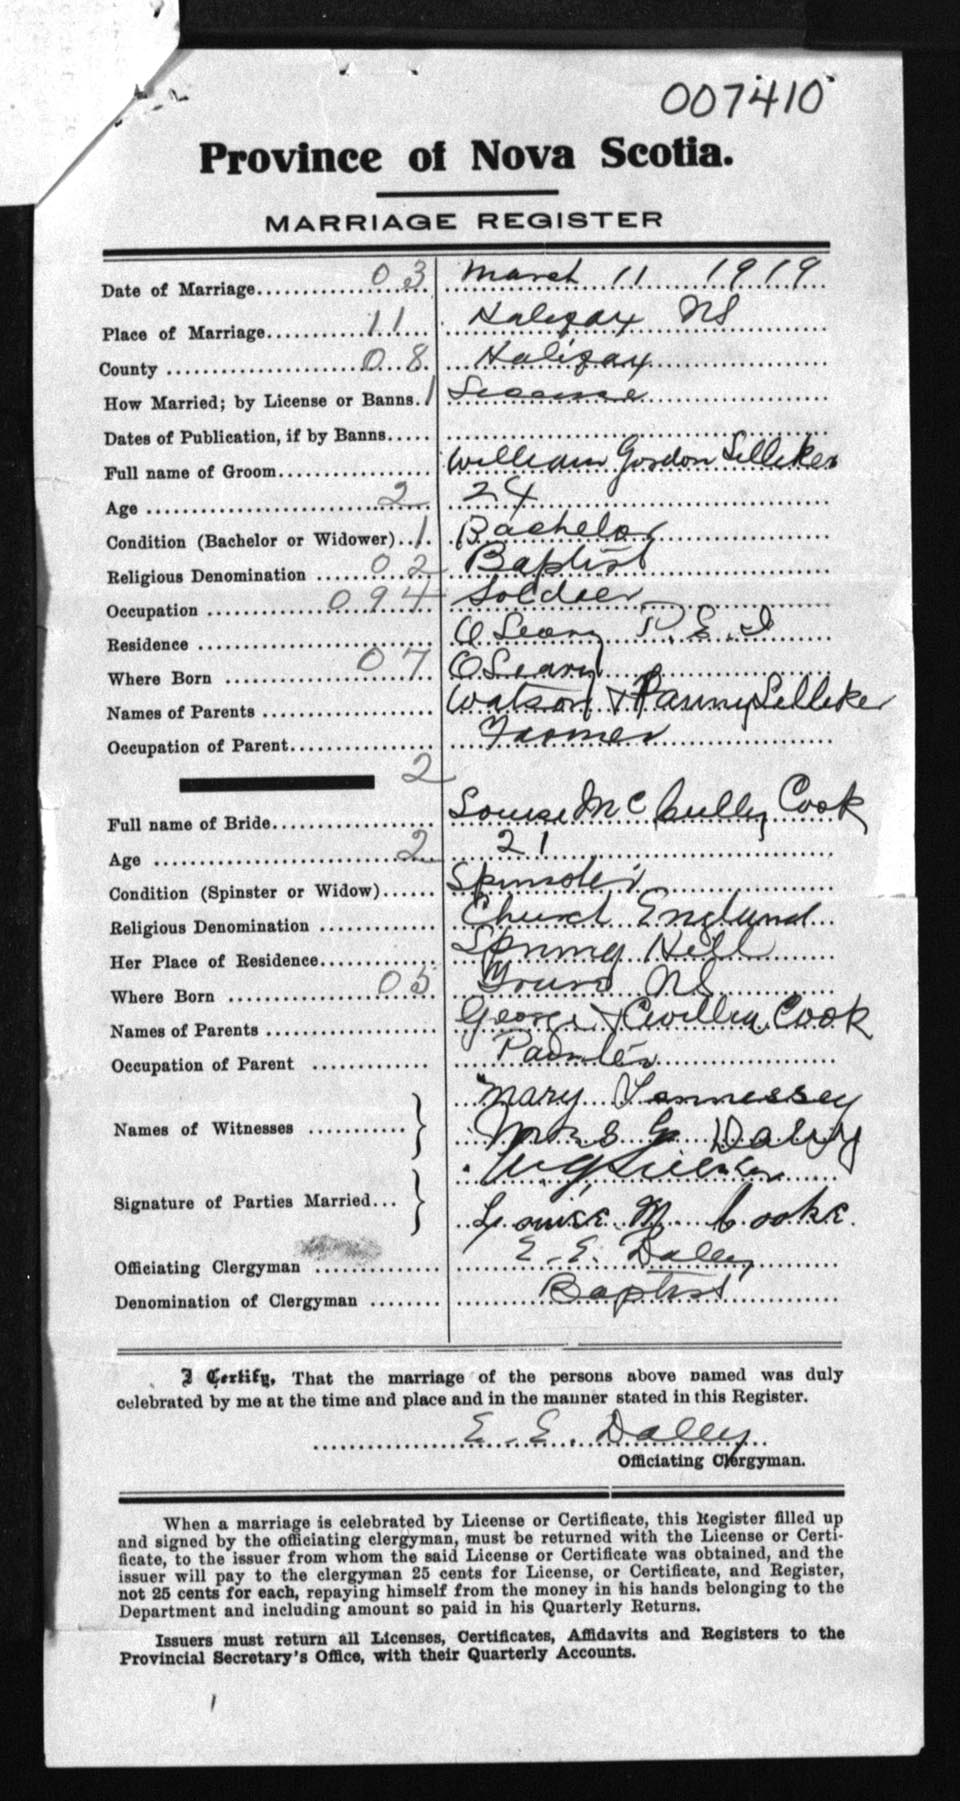 007410
Province of Nova Scotia.
MARRIAGE REGISTER
Date of Marriage 03 March 11 1919
Place of Marriage 11 Halifax NS
County 08 Halifax
How Married; by License or Banns. 1 License
Dates of Publication, if by Banns
Full name of Groom William Gordon Selliker
Age 2 24
Condition (Bachelor or Widower) 1 Bachelor
Religious Denomination 02 Baptist
Occupation 094 Soldier
Residence O Leary P.E.I
Where Born 07 O Leary
Names of Parents Watson & Fanny Selliker
Occupation of Parent Farmer
2
Full name of Bride Louise McCully Cook
Age 2 21
Condition (Spinster or Widow) Spinster
Religious Denomination Church England
Her Place of Residence Spring Hill
Where Born 05 Truro NS
Names of Parents George & Cook
Occupation of Parent Painter
Mary
Names of Witnesses Mrs Daley
W G
Signature of Parties Married
Louise M. Cooke.
Officiating Clergyman E. E. Daley
Denomination of Clergyman Baptist
I Certify, That the marriage of the persons above named was duly
celebrated by me at the time and place and in the manner stated in this Register.
E. E. Daley
Officiating Clergyman.
When a marriage is celebrated by License or Certificate, this Register filled up
and signed by the officiating clergyman, must be returned with the License or Certi-
ficate, to the issuer from whom the said License or Certificate was obtained, and the
issuer will pay to the clergyman 25 cents for License, or Certificate, and Register,
not 25 cents for each, repaying himself from the money in his hands belonging to the
Department and including amount so paid in his Quarterly Returns.
Issuers must return all Licenses, Certificates, Affidavits and Registers to the
Provincial Secretary's Office, with their Quarterly Accounts.